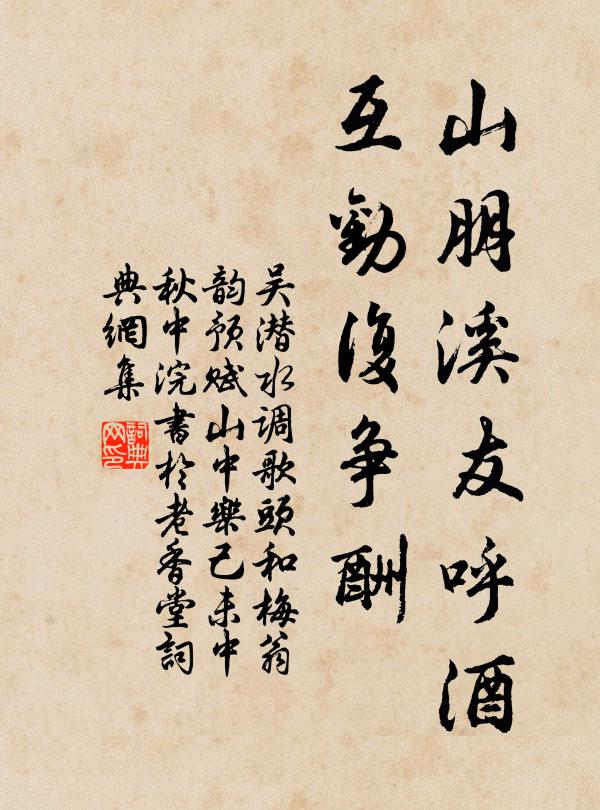 山朋溪友呼酒
互勸復争酬
吴潜水调歌頭和梅翁
韵預赋山中樂己未中
秋中浣書於老香堂詞
典網集
詞典
网印